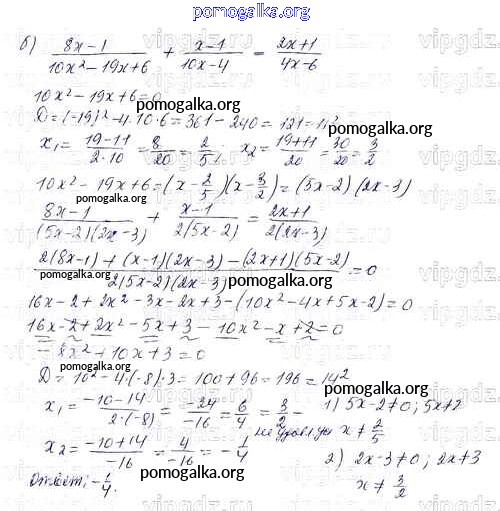 pomogalka.org
б) (8x-1)/(10x²-19x+6) + (x-1)/(10x-4) = (2x+1)/(4x-6)
10x²-19x+6=0
pomogalka.org
D=(-19)²-4·10·6=361-240=121=11²
x₁= (19-11)/(2·10) = 8/20 = 2/5; x₂= (19+11)/20 = 30/20 = 3/2
pomogalka.org
10x²-19x+6=(x-2/5)(x-3/2)=(5x-2)(2x-3)
pomogalka.org
(8x-1)/((5x-2)(2x-3)) + (x-1)/(2(5x-2)) = (2x+1)/(2(2x-3))
(2(8x-1)+(x-1)(2x-3)-(2x+1)(5x-2))/(2(5x-2)(2x-3)) =0
pomogalka.org
pomogalka.org
16x-2+2x²-3x-2x+3-(10x²-4x+5x-2)=0
16x-2+2x²-5x+3-10x²-x+2=0
pomogalka.org
-8x²+10x+3=0
D=10²-4·(-8)·3=100+96=196=14²
pomogalka.org
x₁= (-10-14)/(2·(-8)) = -24/-16 = 6/4 = 3/2 -
1) 5x-2≠0; 5x≠2
x≠ 2/5
x₂= (-10+14)/-16 = 4/-16 = -1/4
2) 2x-3≠0; 2x≠3
pomogalka.org
x≠ 3/2
Ответ: -1/4.
vipgdz.com